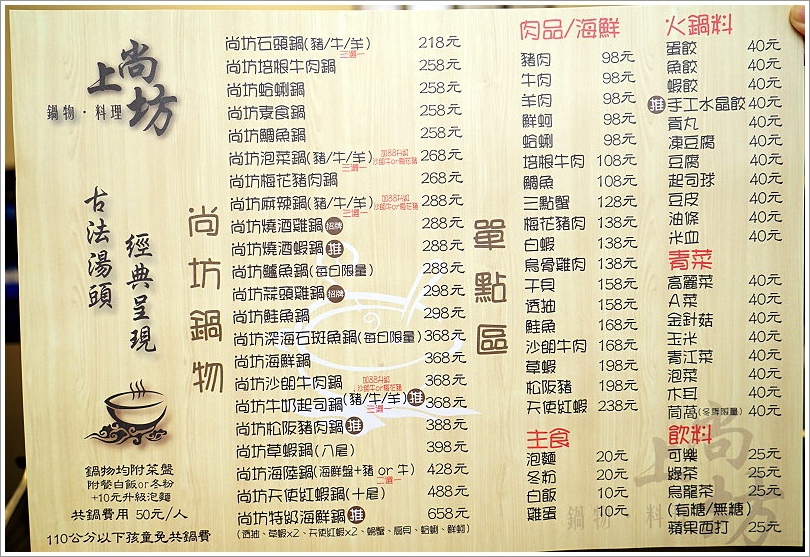 尚上坊
鍋物・料理
古法湯頭
經典呈現
鍋物均附菜盤
附餐白飯or冬粉
+10元升級泡麵
共鍋費用 50元/人
110公分以下孩童免共鍋費
尚坊鍋物
尚坊石頭鍋(豬/牛/羊) 218元
三選一
尚坊培根牛肉鍋 258元
尚坊蛤蜊鍋 258元
尚坊素食鍋 258元
尚坊鯛魚鍋 258元
尚坊泡菜鍋(豬/牛/羊) 268元
三選一
加88升級
沙朗牛or梅花豬
尚坊梅花豬肉鍋 268元
尚坊麻辣鍋(豬/牛/羊) 268元
三選一
加88升級
沙朗牛or梅花豬
尚坊燒酒雞鍋 招牌 288元
尚坊燒酒蝦鍋 推 288元
尚坊鱸魚鍋(每日限量) 288元
尚坊蒜頭雞鍋 招牌 298元
尚坊鮭魚鍋 298元
尚坊深海石斑魚鍋(每日限量) 368元
尚坊海鮮鍋 368元
尚坊沙朗牛肉鍋 368元
加88升級
沙朗牛or梅花豬
尚坊牛奶起司鍋(豬/牛/羊) 推 368元
三選一
尚坊松阪豬肉鍋 推 388元
尚坊草蝦鍋(八尾) 398元
尚坊海陸鍋(海鮮盤+豬 or 牛) 428元
二選一
尚坊天使紅蝦鍋(十尾) 488元
尚坊特級海鮮鍋 推 658元
單點區
肉品/海鮮
豬肉 98元
牛肉 98元
羊肉 98元
鮮蚵 98元
蛤蜊 98元
培根牛肉 108元
鯛魚 108元
三點蟹 128元
梅花豬肉 138元
白蝦 138元
烏骨雞肉 138元
干貝 158元
透抽 158元
鮭魚 168元
沙朗牛肉 168元
草蝦 198元
松阪豬 198元
天使紅蝦 238元
主食
泡麵 20元
冬粉 20元
白飯 10元
雞蛋 10元
火鍋料
蛋餃 40元
魚餃 40元
蝦餃 40元
推 手工水晶餃 40元
貢丸 40元
凍豆腐 40元
豆腐 40元
起司球 40元
豆皮 40元
油條 40元
米血 40元
青菜
高麗菜 40元
A菜 40元
金針菇 40元
玉米 40元
青江菜 40元
泡菜 40元
木耳 40元
茼蒿(冬季限量) 40元
飲料
可樂 25元
綠茶 25元
烏龍茶 25元
(有糖/無糖)
蘋果西打 25元
尚上坊
鍋物・料